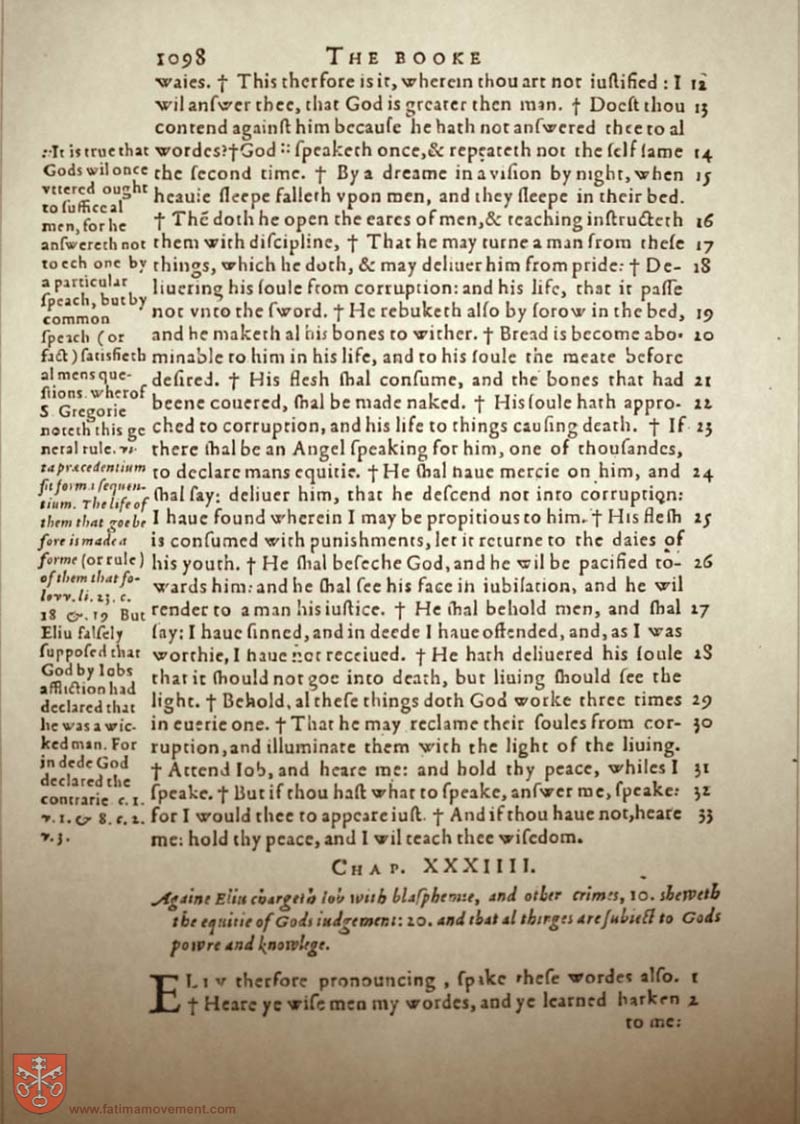 1098 THE BOOKE
waies. † This therfore is it, wherein thou art not iuſtified : I 12
wil anſwer thee, that God is greater then man. † Doeſt thou 13
contend againſt him becauſe he hath not anſwered thee to al
wordes? † God :: ſpeaketh once, & repeateth not the ſelf ſame 14
the ſecond time. † By a dreame in a viſion by night, when 15
heauie ſleepe falleth vpon men, and they ſleepe in their bed.
† Thē doth he open the eares of men, & teaching inſtructeth 16
them with diſcipline, † That he may turne a man from theſe 17
things, which he doth, & may deliuer him from pride: † De- 18
liuering his ſoule from corruption: and his life, that it paſſe
not vnto the ſword. † He rebuketh alſo by ſorow in the bed, 19
and he maketh al his bones to wither. † Bread is become abo- 20
minable to him in his life, and to his ſoule the meate before
deſired. † His fleſh ſhal conſume, and the bones that had 21
beene couered, ſhal be made naked. † His ſoule hath appro- 22
ched to corruption, and his life to things cauſing death. † If 23
there ſhal be an Angel ſpeaking for him, one of thouſandes,
to declare mans equitie. † He ſhal haue mercie on him, and 24
ſhal ſay: deliuer him, that he deſcend not into corruption:
I haue found wherein I may be propitious to him. † His fleſh 25
is conſumed with puniſhments, let it returne to the daies of
his youth. † He ſhal beſeche God, and he wil be pacified to- 26
wards him: and he ſhal ſee his face in iubilation, and he wil
render to a man his iuſtice. † He ſhal behold men, and ſhal 27
ſay: I haue ſinned, and in deede I haue offended, and, as I was
worthie, I haue not receiued. † He hath deliuered his ſoule 28
that it ſhould not goe into death, but liuing ſhould ſee the
light. † Behold, al theſe things doth God worke three times 29
in euerie one. † That he may reclame their ſoules from cor- 30
ruption, and illuminate them with the light of the liuing.
† Attend Iob, and heare me: and hold thy peace, whiles I 31
ſpeake. † But if thou haſt what to ſpeake, anſwer me, ſpeake: 32
for I would thee to appeare iuſt. † And if thou haue not, heare 33
me: hold thy peace, and I wil teach thee wiſedom.
:: It is true that
Gods wil once
vttered ought
to ſuffice al
men, for he
anſwereth not
to ech one by
a particular
ſpeach, but by
common
ſpeach (or
fact) ſatisfieth
al mens que-
ſtions. wherof
S Gregorie
noteth this ge
neral rule. vi-
ta præcedentium
fit forma ſequen-
tium. The life of
them that goe be
fore is made a
forme (or rule)
of them that fo-
lovv. li. 23. c.
18 &. 19 But
Eliu falſely
ſuppoſed that
God by Iobs
affliction had
declared that
he was a wic-
ked man. For
in dede God
declared the
contrarie c. 1.
v. 1. & 8. c. 2.
v. 3.
CHAP. XXXIIII.
Againe Eliu chargeth Iob with blaſphemie, and other crimes, 10. sheweth
the equitie of Gods iudgement: 20. and that al thinges are ſubiect to Gods
powre and knowlege.
ELIV therfore pronouncing , ſpake theſe wordes alſo. 1
† Heare ye wiſe men my wordes, and ye learned harken 2
to me:
www.fatimamovement.com